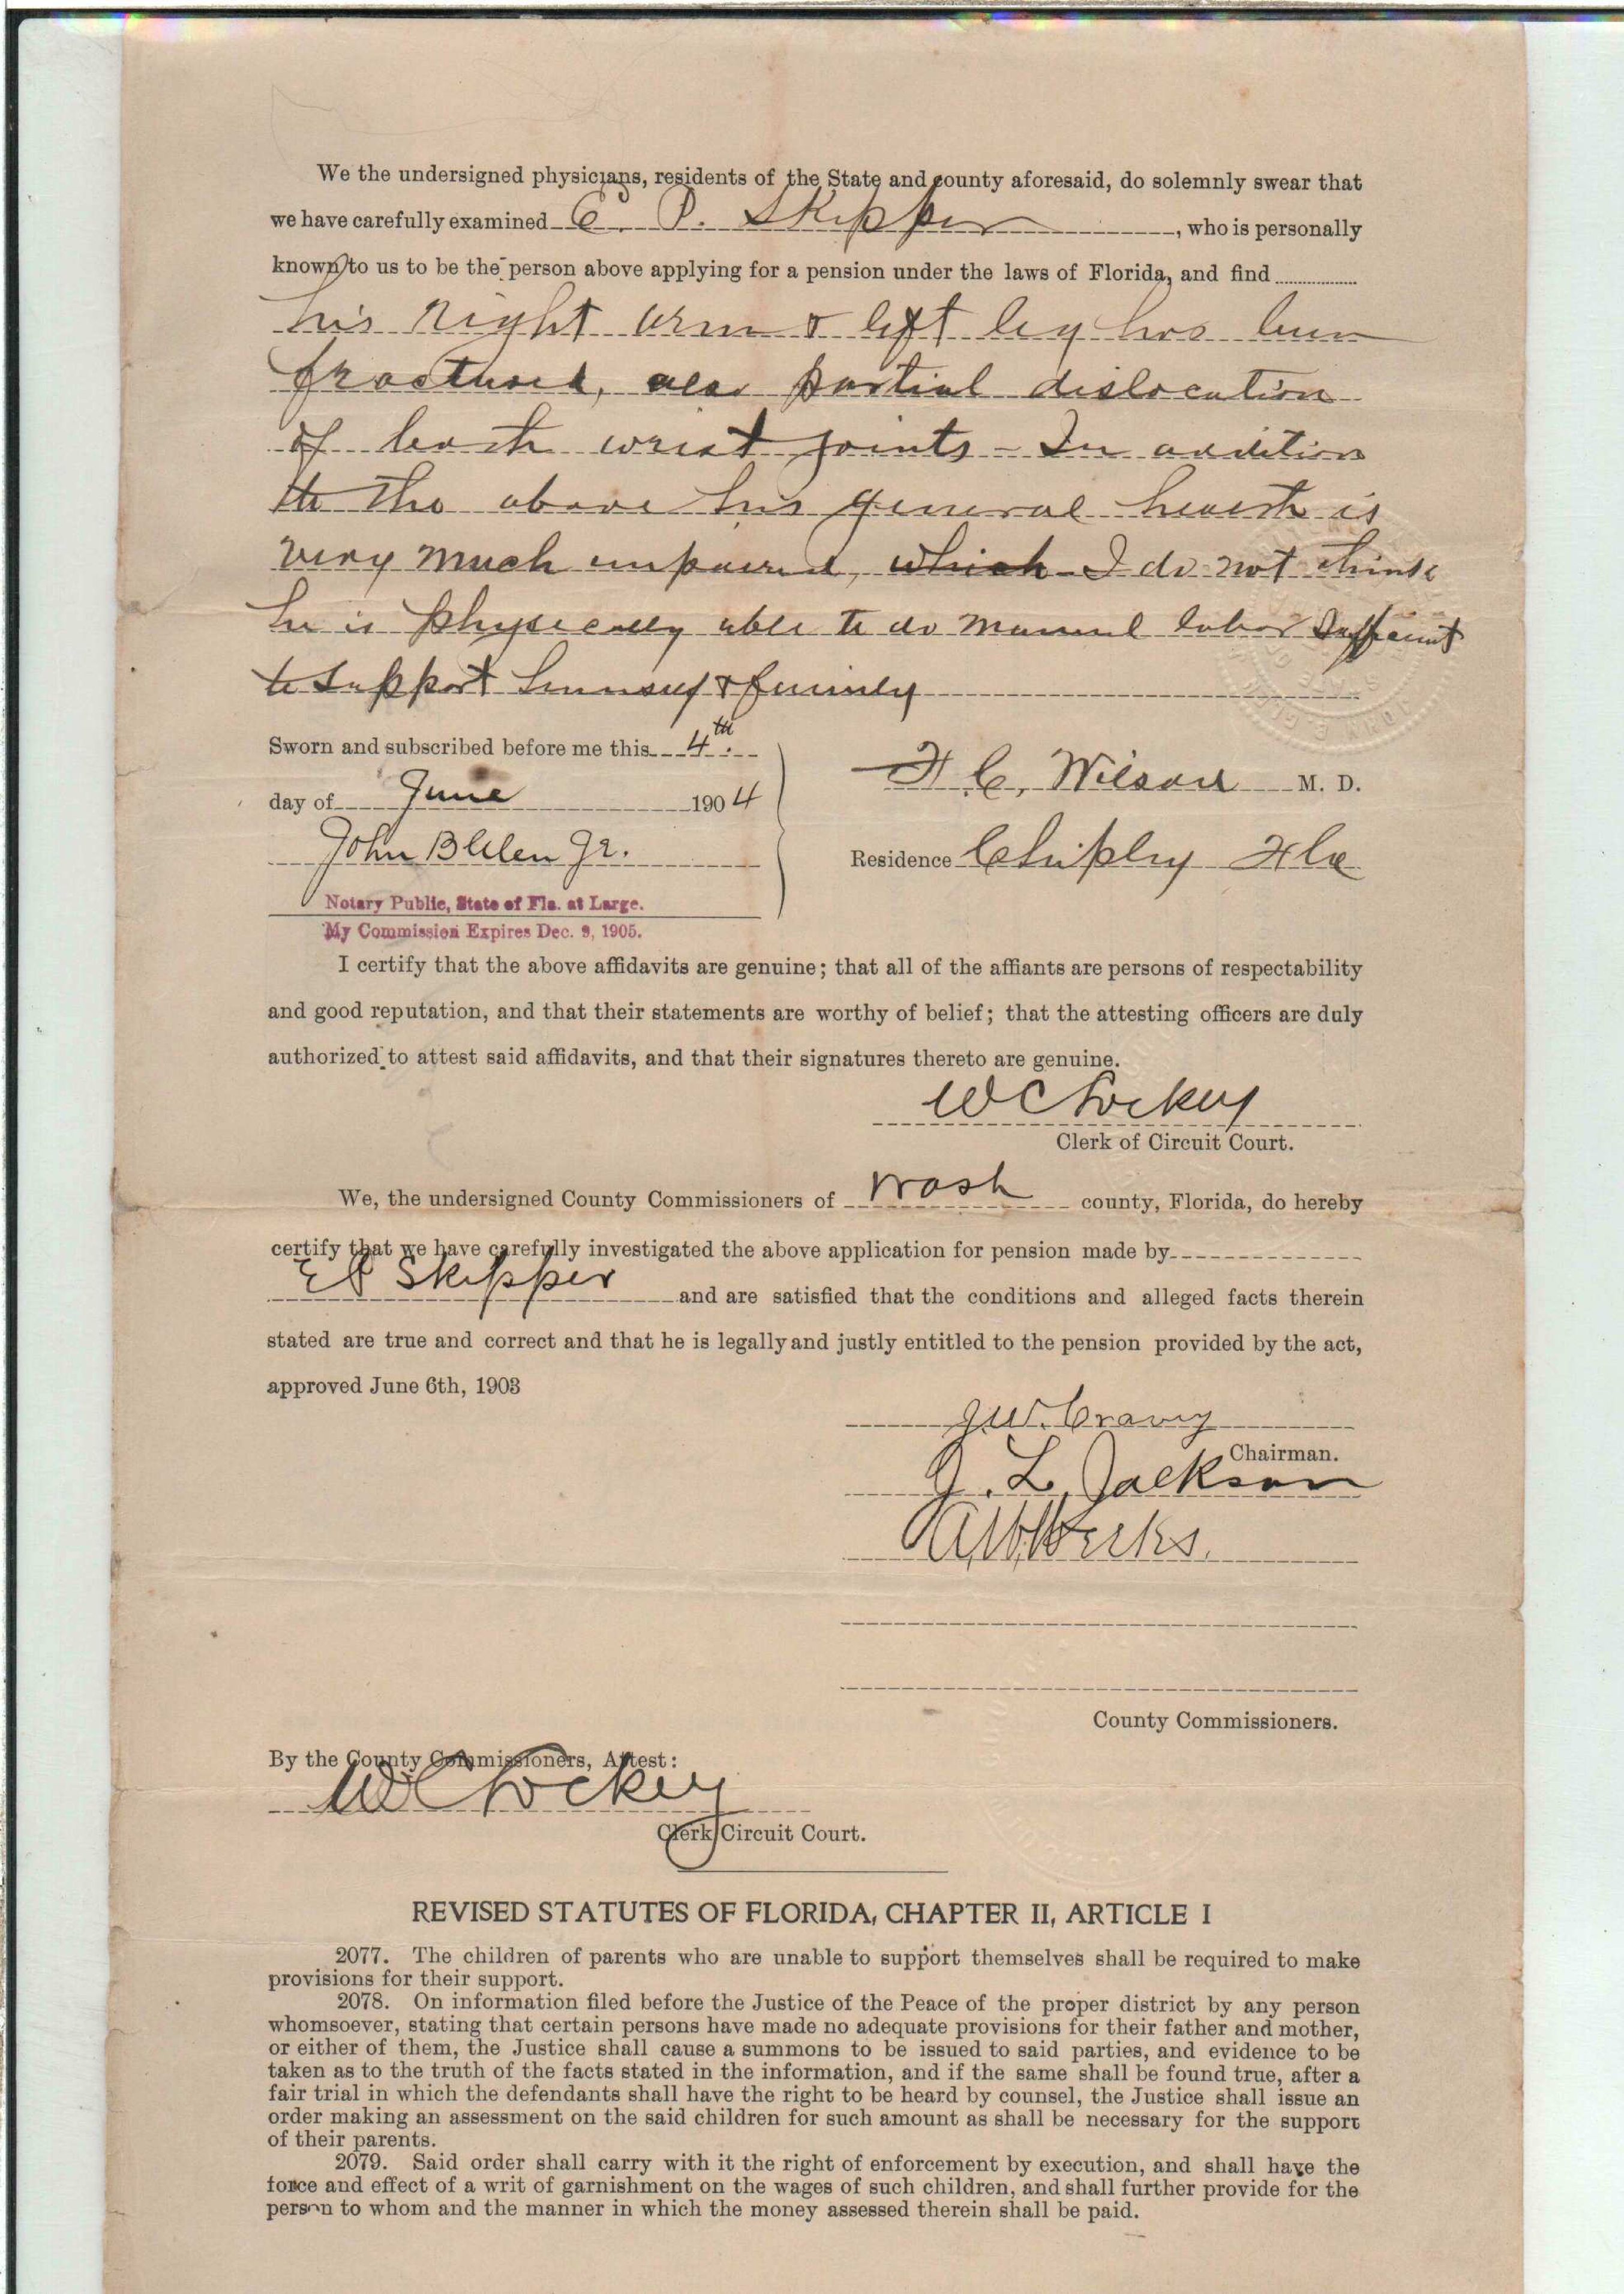 We the undersigned physicians, residents of the State and county aforesaid, do solemnly swear that
we have carefully examined E. P. Skipper, who is personally
known to us to be the person above applying for a pension under the laws of Florida, and find
his right arm & left leg has been
fractured, also partial dislocation
of both wrist joints - In addition
to the above his general health is
very much impaired, which I do not think
he is physically able to do manual labor sufficient
to support himself & family
Sworn and subscribed before me this 4th
day of June 1904
John Jr.
Notary Public, State of Fla. at Large.
My Commission Expires Dec. 9, 1905.
C. Wilson M. D.
Residence Chipley Fla
I certify that the above affidavits are genuine; that all of the affiants are persons of respectability
and good reputation, and that their statements are worthy of belief; that the attesting officers are duly
authorized to attest said affidavits, and that their signatures thereto are genuine.
W C Lockey
Clerk of Circuit Court.
We, the undersigned County Commissioners of Wash county, Florida, do hereby
certify that we have carefully investigated the above application for pension made by
E P Skipper and are satisfied that the conditions and alleged facts therein
stated are true and correct and that he is legally and justly entitled to the pension provided by the act,
approved June 6th, 1903
J. W.
Chairman.
J. L. Jackson
County Commissioners.
By the County Commissioners, Attest:
W C Lockey
Clerk Circuit Court.
REVISED STATUTES OF FLORIDA, CHAPTER II, ARTICLE I
2077. The children of parents who are unable to support themselves shall be required to make
provisions for their support.
2078. On information filed before the Justice of the Peace of the proper district by any person
whomsoever, stating that certain persons have made no adequate provisions for their father and mother,
or either of them, the Justice shall cause a summons to be issued to said parties, and evidence to be
taken as to the truth of the facts stated in the information, and if the same shall be found true, after a
fair trial in which the defendants shall have the right to be heard by counsel, the Justice shall issue an
order making an assessment on the said children for such amount as shall be necessary for the support
of their parents.
2079. Said order shall carry with it the right of enforcement by execution, and shall have the
force and effect of a writ of garnishment on the wages of such children, and shall further provide for the
person to whom and the manner in which the money assessed therein shall be paid.